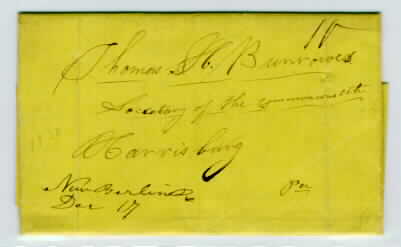 10
Thomas H. Burrowes
Secretary of the commonwealth
Harrisburg
New Berlin Pa
Dec 17